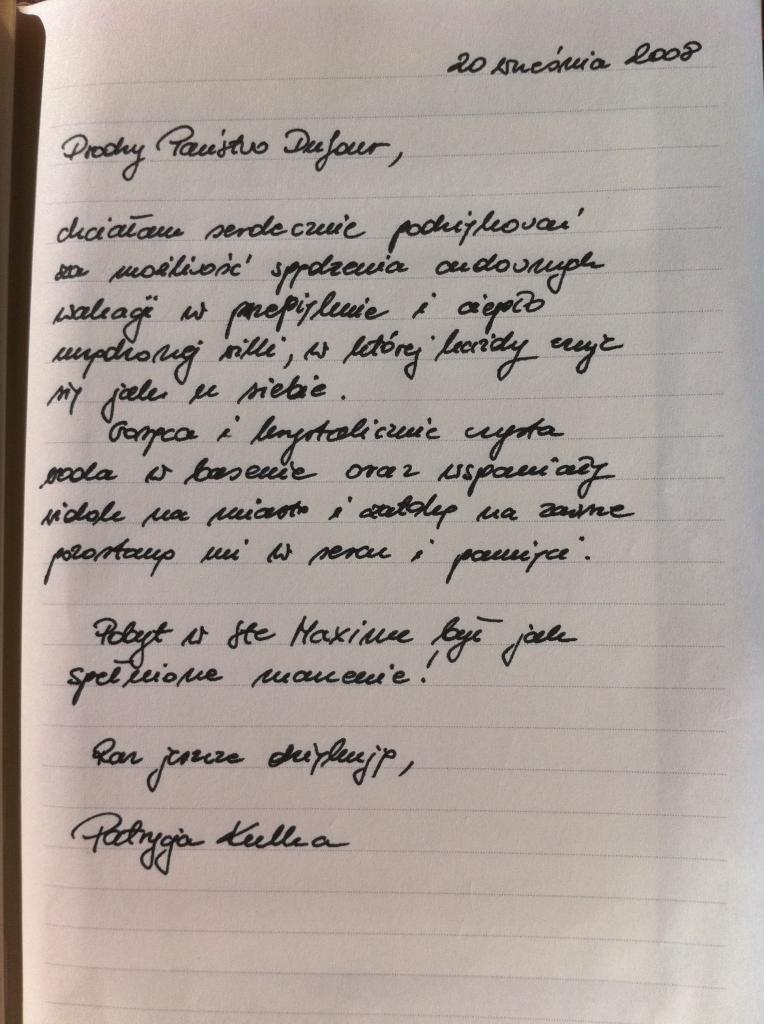 20 września 2008
Drodzy Państwo Dufour,
chciałam serdecznie podziękować
za możliwość spędzenia cudownych
wakacji w przepięknie i ciepło
urządzonej willi, w której każdy czuje
się jak u siebie.
Gorąca i krystalicznie czysta
woda w basenie oraz wspaniały
widok na miasto i zatokę na zawsze
pozostaną mi w sercu i pamięci.
Pobyt w Ste Maxime był jak
spełnione marzenie!
Raz jeszcze dziękuję,
Patrycja Kulka